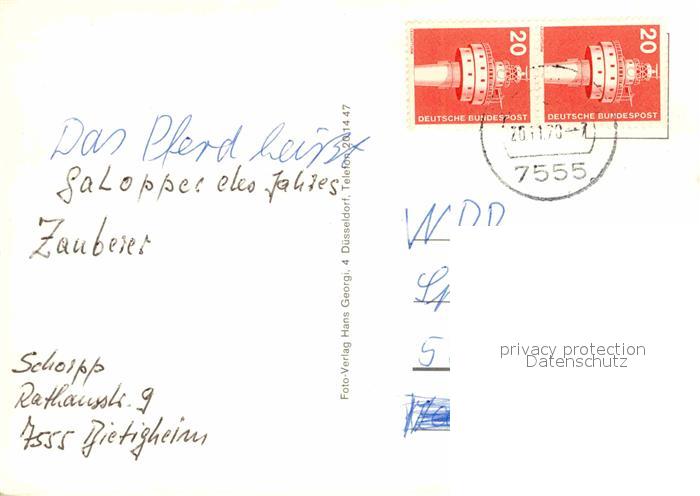 20
DEUTSCHE BUNDESPOST
20
DEUTSCHE BUNDESPOST
7555
Das Pferd heißt
Galopper des Jahres
Zauberer
Schorpp
Rathausstr. 9
7555 Bietigheim
Foto-Verlag Hans Georgi, 4 Düsseldorf, Telefon 20 14 47
WDD
Sp
5
privacy protection
Datenschutz